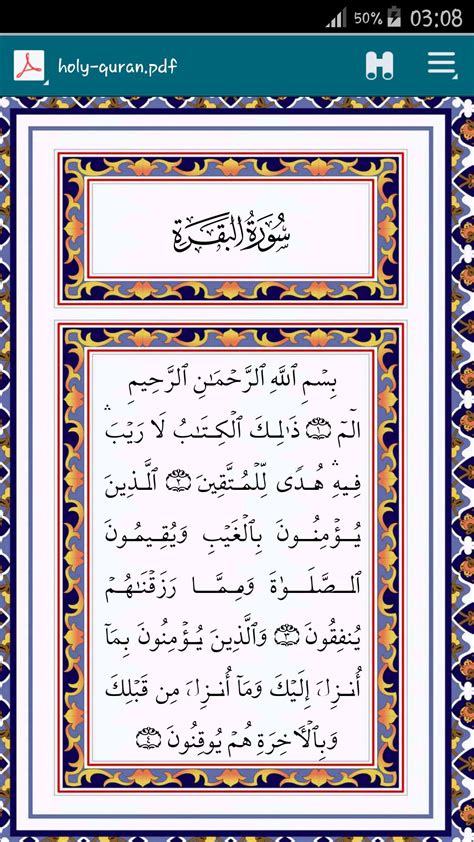 50% 03:08
holy-quran.pdf
سُورَةُ الْبَقَرَةِ
بِسْمِ ٱللَّهِ ٱلرَّحْمَـٰنِ ٱلرَّحِيمِ
الٓمٓ ﴿١﴾ ذَٰلِكَ ٱلْكِتَـٰبُ لَا رَيْبَ ۛ
فِيهِ ۛ هُدًى لِّلْمُتَّقِينَ ﴿٢﴾ ٱلَّذِينَ
يُؤْمِنُونَ بِٱلْغَيْبِ وَيُقِيمُونَ
ٱلصَّلَوٰةَ وَمِمَّا رَزَقْنَـٰهُمْ
يُنفِقُونَ ﴿٣﴾ وَٱلَّذِينَ يُؤْمِنُونَ بِمَآ
أُنزِلَ إِلَيْكَ وَمَآ أُنزِلَ مِن قَبْلِكَ
وَبِٱلْـَٔاخِرَةِ هُمْ يُوقِنُونَ ﴿٤﴾